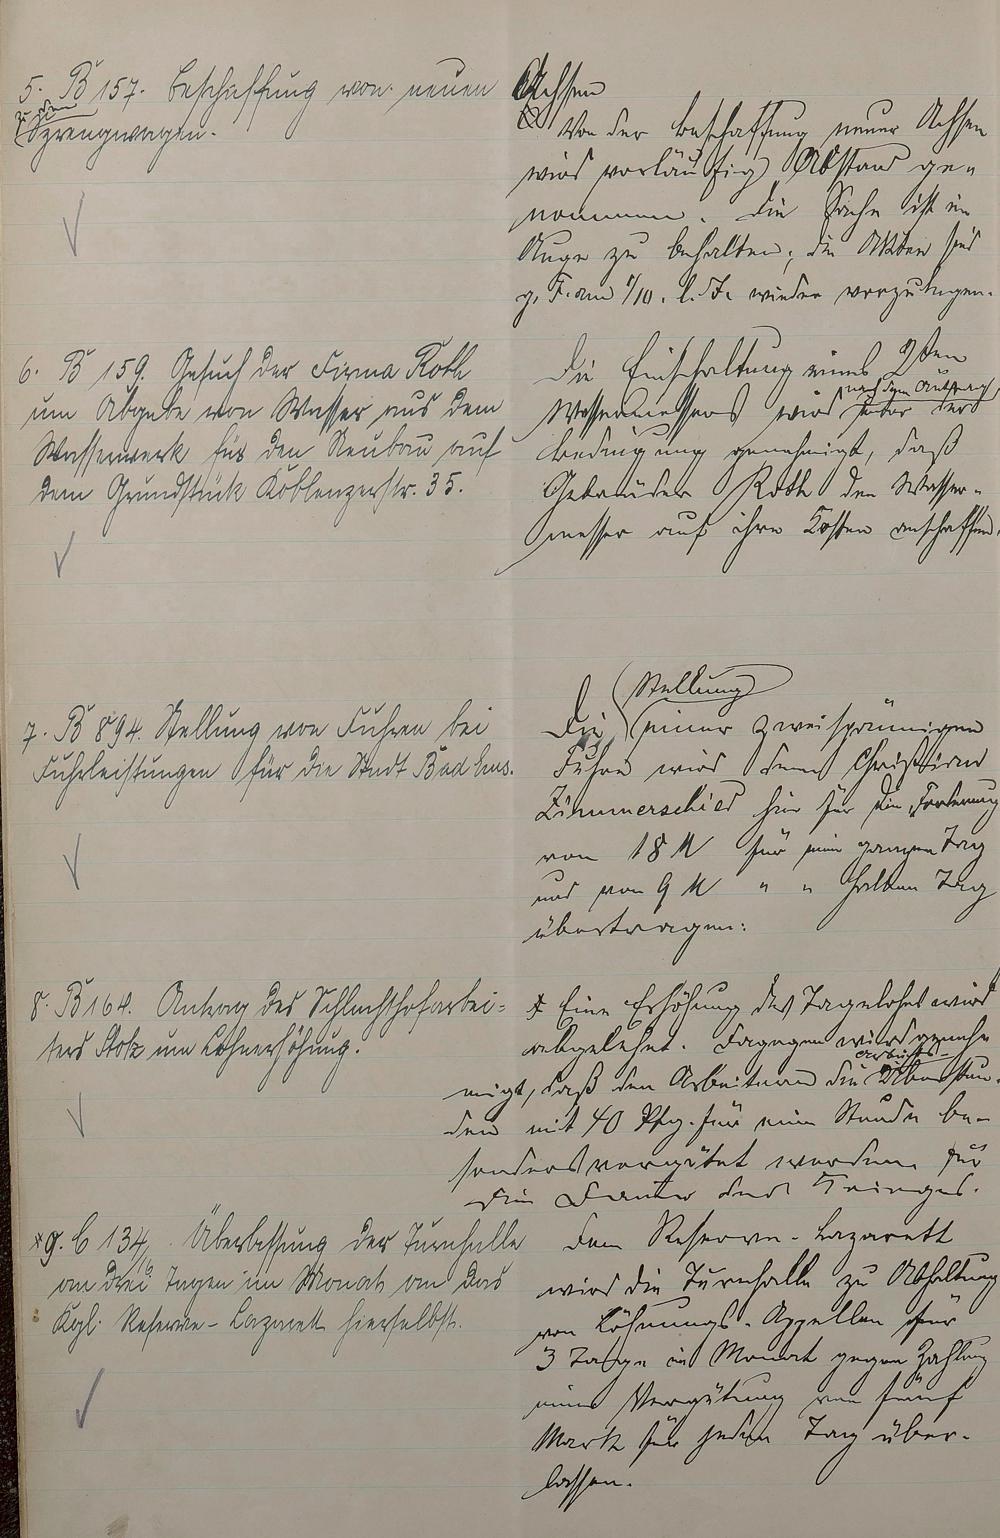 5. B 157. Beschaffung von neuen Achsen
zu den
Sprengwagen.
Von der Beschaffung neuer Achsen
wird vorläufig Abstand ge-
nommen. Die Sache ist im
Auge zu behalten; die Akten sind
g. F. am 1/10. l. Js. wieder vorzulegen.
6. B 159. Gesuch der Firma Roth
um Abgabe von Wasser aus dem
Wasserwerk für den Neubau auf
dem Grundstück Koblenzerstr. 35.
Die Einschaltung eines 2ten
nach dem Antrag
Wassermessers wird unter der
Bedingung genehmigt, daß
Gebrüder Roth den Wasser-
messer auf ihre Kosten anschaffen.
7. B 894. Stellung von Fuhren bei
Fuhrleistungen für die Stadt Bad Ems.
Stellung
Die einer zweispännigen
Fuhre wird dem Christian
Zimmerschied hier für die Forderung
von 18 M für einen ganzen Tag
und von 9 M " " halben Tag
übertragen.
8. B 164. Antrag des Schlachthofarbei-
ters Stotz um Lohnerhöhung.
Eine Erhöhung des Tagelohns wird
abgelehnt. Dagegen wird geneh-
migt, daß den Arbeitern die Überstun-
den mit 40 Pfg. für eine Stunde be-
sonders vergütet werden für
die Dauer des Krieges.
*9. C 134. Überlassung der Turnhalle
an drei Tagen im Monat an das
Kgl. Reserve-Lazarett hierselbst.
Dem Reserve-Lazarett
wird die Turnhalle zu Abhaltung
von Löhnungs-Appellen für
3 Tage im Monat gegen Zahlung
einer Vergütung von fünf
Mark für jeden Tag über-
lassen.